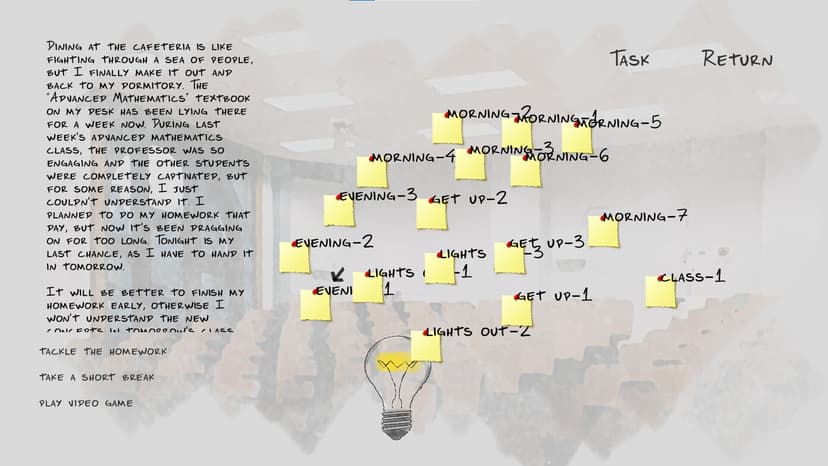 Dining at the cafeteria is like
fighting through a sea of people,
but I finally make it out and
back to my dormitory. The
"Advanced Mathematics" textbook
on my desk has been lying there
for a week now. During last
week's advanced mathematics
class, the professor was so
engaging and the other students
were completely captivated, but
for some reason, I just
couldn't understand it. I
planned to do my homework that
day, but now it's been dragging
on for too long. Tonight is my
last chance, as I have to hand it
in tomorrow.
It will be better to finish my
homework early, otherwise I
won't understand the new
concepts in tomorrow's class
Tackle the homework
Take a short break
Play video game
Task
Return
Morning-2
Morning-1
Morning-5
Morning-4
Morning-3
Morning-6
Evening-3
Get up-2
Morning-7
Evening-2
Get up-3
Lights
-3
Lights
-1
Class-1
Eveni
1
Get up-1
Lights out-2